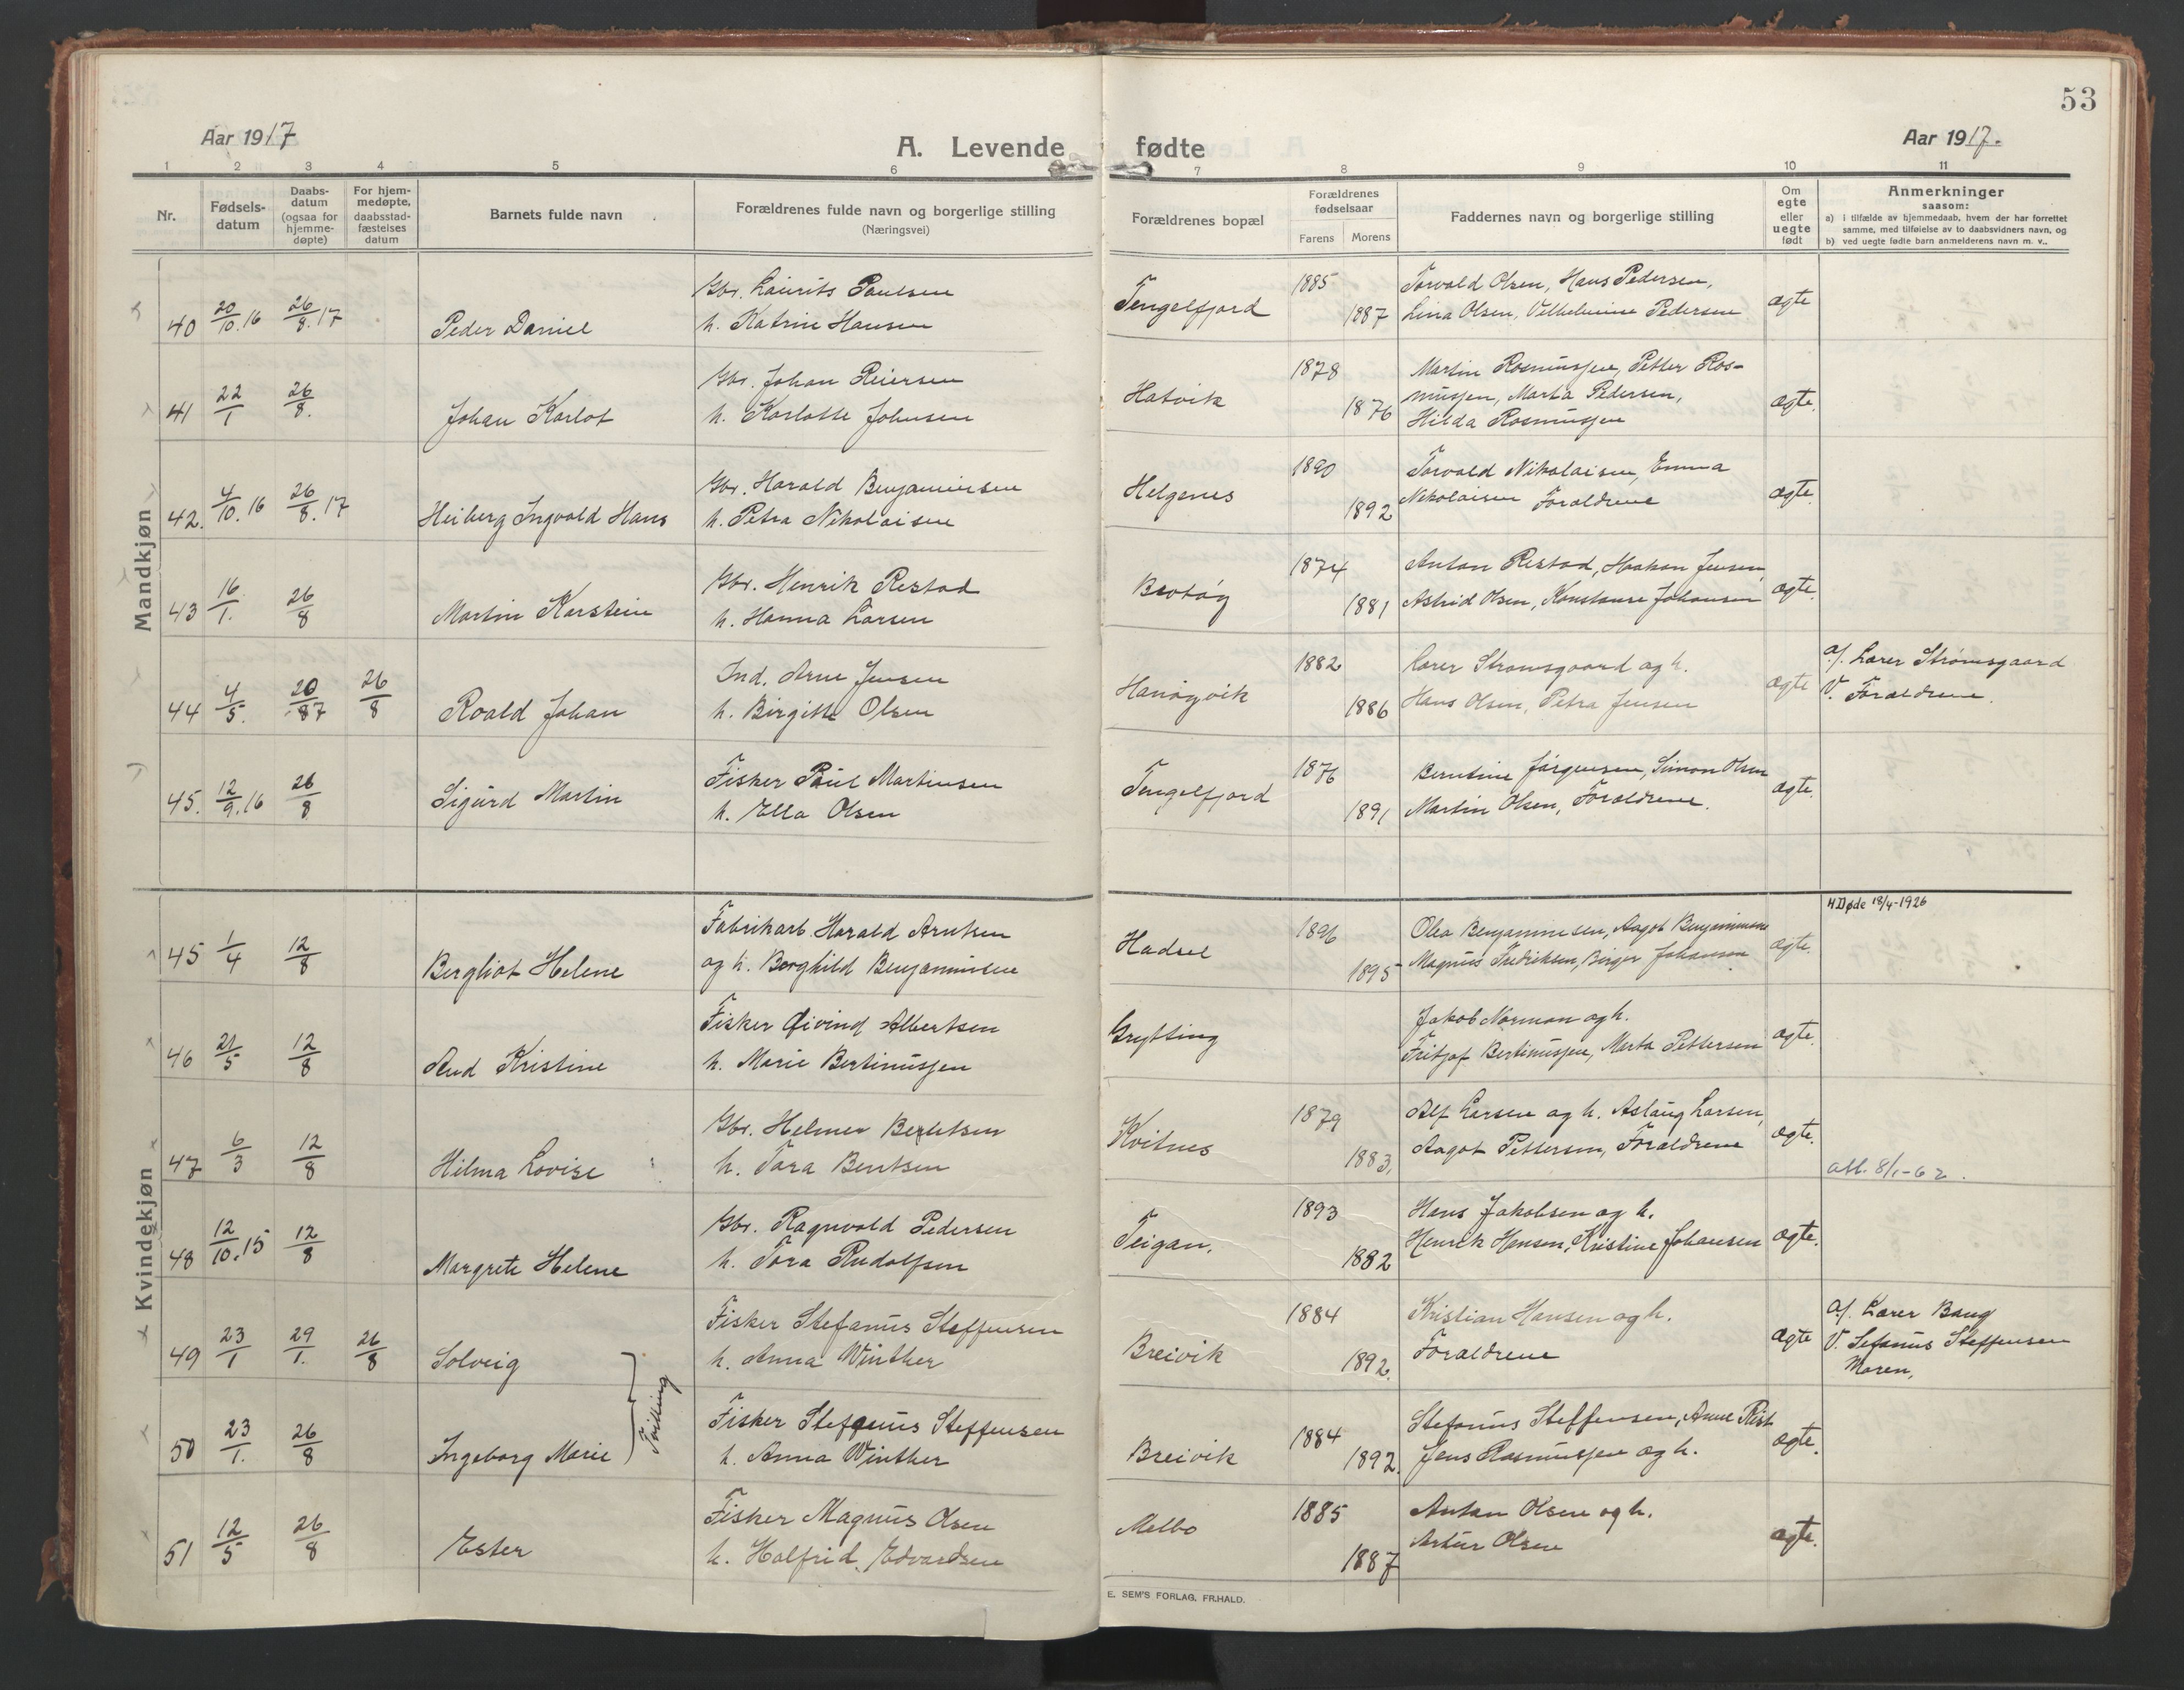 53
Aar 1917
A. Levende fødte
Aar 1917.
1 2 3 4 5 6 7 8 9 10 11
Nr.
Fødsels-
datum
Daabs-
datum
(ogsaa for
hjemme-
døpte)
For hjem-
medøpte,
daabsstad-
fæstelses
datum
Barnets fulde navn
Forældrenes fulde navn og borgerlige stilling
(Næringsvei)
Forældrenes bopæl
Forældrenes
fødselsaar
Farens Morens
Faddernes navn og borgerlige stilling
Om
egte
eller
uegte
født
Anmerkninger
saasom:
a) i tilfælde av hjemmedaab, hvem der har forrettet
samme, med tilføielse av to daabsvidners navn, og
b) ved uegte fødte barn anmelderens navn m. v..
Mandkjøn
40 20/10.16 26/8.17 Peder Daniel
Gbr. Laurits Paulsen
h. Katrine Hansen
Tengelfjord 1885 1887
Torvald Olsen, Hans Pedersen,
Lina Olsen, Vilhelmine Pedersen
ægte
41 22/1 26/8. Johan Karlot
Gbr. Johan Reiersen
h. Karlotte Johnsen
Hatvik 1878 1876
Martin Rasmussen, Petter Ras-
mussen, Marta Pedersen,
Hilda Rasmussen
ægte.
42. 4/10.16 26/8.17 Heiberg Ingvald Hans
Gbr. Harald Benjaminsen
h. Petra Nikolaisen
Helgenes 1890 1892
Torvald Nikolaisen, Emma
Nikolaisen Forældrene
ægte.
43 16/1. 26/8 Martin Karstein
Gbr. Henrik Restad
h. Hanna Larsen
Brotøy 1874 1881
Anton Restad, Haakon Jensen,
Astrid Olsen, Konstanse Johansen
ægte.
44 4/5. 20/87 26/8 Roald Johan
Ind. Arne Jensen
h. Birgitte Olsen
Hanøyvik 1882 1886
Lærer Strømsgaard og h.
Hans Olsen, Petra Jensen
ægte
a/. Lærer Strømsgaard
V. Forældrene.
45. 12/9.16 26/8 Sigurd Martin
Fisker Paul Martinsen
h. Ella Olsen
Tengelfjord 1876 1891
Berntine Jørgensen, Simon Olsen
Martin Olsen, Forældrene.
ægte.
Kvindekjøn
45 1/4 12/8 Bergliot Helene
Fabrikarb. Harald Arntsen
og h. Borghild Benjaminsen
Hadsel 1896 1895
Olea Benjaminsen, Aagot Benjaminsen
Magnus Fredriksen, Birger Johansen
ægte.
H Døde 18/4-1926
46 21/5 12/8 Aud Kristine
Fisker Øivind Albertsen
h. Marie Bertinussen
Grytting
Jakob Norman og h.
Fritjof Bertinussen, Marta Pettersen
ægte.
47 6/3 12/8 Hilma Lovise
Gbr. Helmer Berntsen
h. Tora Bentsen
Kvitnes 1879 1883,
Alf Larsen og h. Aslaug Larsen,
Aagot Pettersen, Forældrene
ægte.
att. 8/1-62.
48 12/10.15 12/8 Margrete Helene
Gbr. Ragnvald Pedersen
h. Tora Rudolfsen
Teigan. 1893 1882
Hans Jakobsen og h.
Henrik Hansen, Kristine Johansen
ægte.
49 23/1 29/1. 26/8 Solveig
Tvilling
Fisker Stefanus Steffensen
h. Anna Winther
Breivik 1884 1892.
Kristian Hansen og h.
Forældrene
ægte
a/. Lærer Bang
V. Sefanus Steffensen
Maren,
50 23/1. 26/8 Ingeborg Marie
Fisker Stefanus Steffensen
h. Anna Winther
Breivik 1884 1892.
Stefanus Steffensen, Anne Rist
Jens Rasmussen og h.
ægte.
51 12/5 26/8 Ester
Fisker Magnus Olsen
h. Halfrid Edvardsen
Melbo 1885 1887
Anton Olsen og h.
Artur Olsen
ægte.
E. SEM'S FORLAG, FR.HALD.